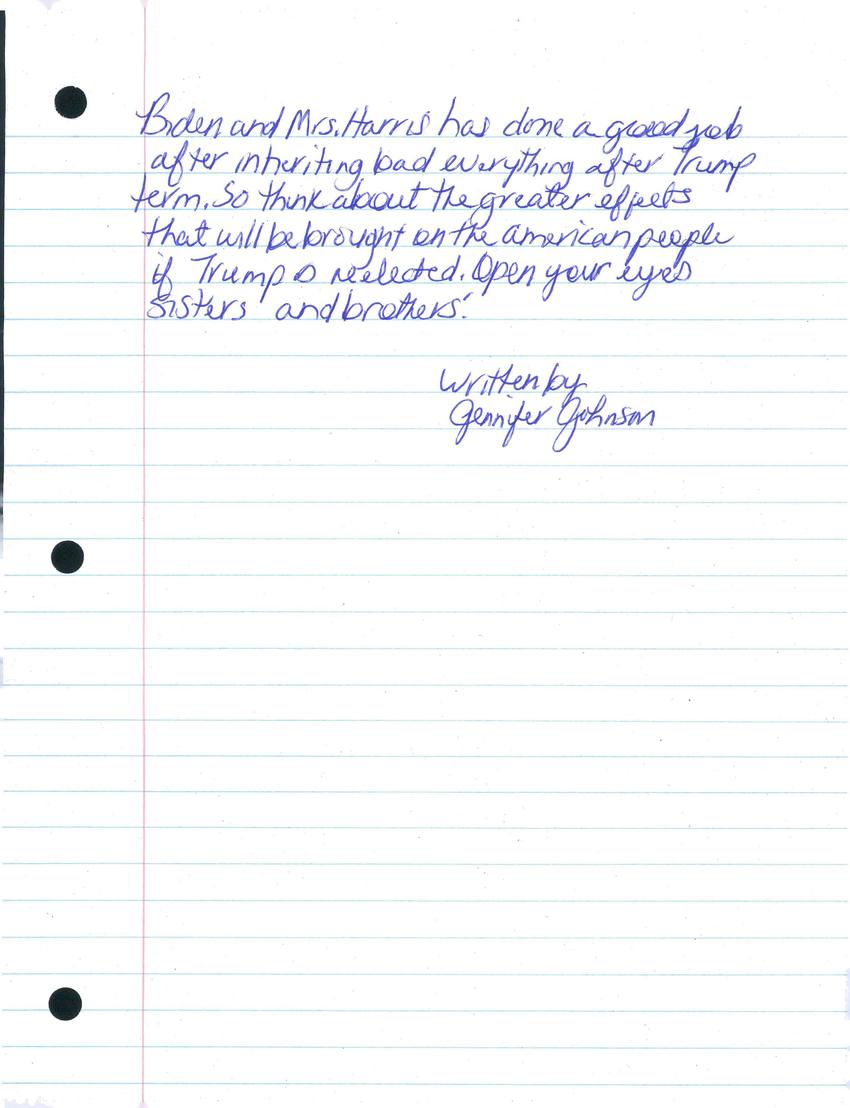 Biden and Mrs. Harris has done a good job
after inheriting bad everything after Trump
term. So think about the greater effects
that will be brought on the american people
if Trump is reelected. Open your eyes
sisters and brothers!
Written by
Jennifer Johnson